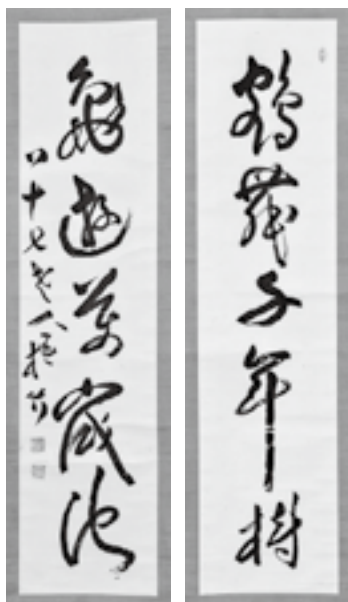 鶴舞千年樹
龜遊萬歳池
八十七老人